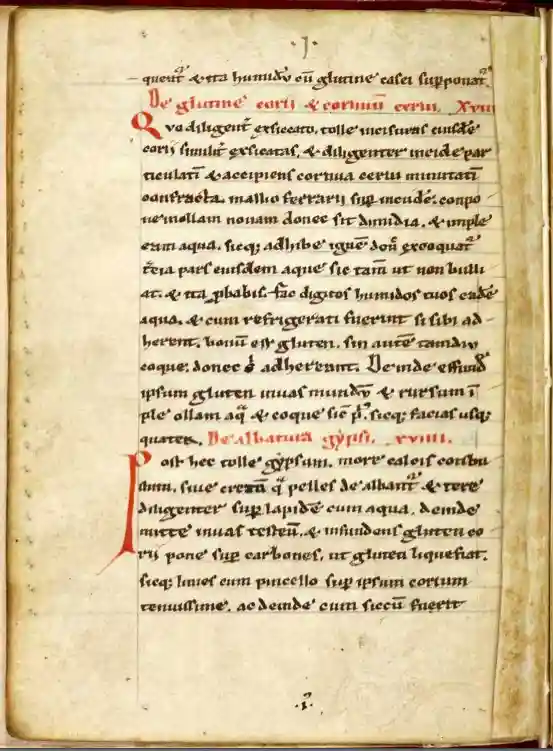 ·J·
queat᷑ & ita humidū cū glutine casei supponat᷑.
De glutine corii & cornuū cerui. XVIII
Qvo diligent᷑ exsiccato, tolle incisuras eiusdē
corij similit᷑ exsicatas, & diligenter incide par
ticulatī & accipiens cornua cerui minutatī
confracta, mallio ferrarij sup̄ incudē, conpo
ne inollam nouam donec sit dimidia, & imple
eam aqua, sicq; adhibe ignē don̄ excoquat᷑
t᷑cia pars eiusdem aque sic tam̄ ut non bulli
at. & ita ꝓbabis. fac digitos humidos tuos eadē
aqua, & cum refrigerati fuerint si sibi ad-
herent, bonū est gluten. sin autē tamdiu
coque, donec adhereant. Deinde effund̄
ipsum gluten inuas mundū & rursum ī
ple ollam aq̄ & coque sic̄ p̄. sicq; facias usq;
quater. De albatura gẏpsi. xviiii.
Post hec tolle gẏpsum, more calcis conbu
stum, siue cretā q̄ pelles dealbant᷑ & tere
diligenter sup̄ lapidē cum aqua, deinde
mitte inuas testeū, & infundens gluten co
rij pone sup̄ carbones, ut gluten liquefiat.
sicq; linies cum pincello sup̄ ipsum corium
tenuissime, ac deinde cum siccū fuerit